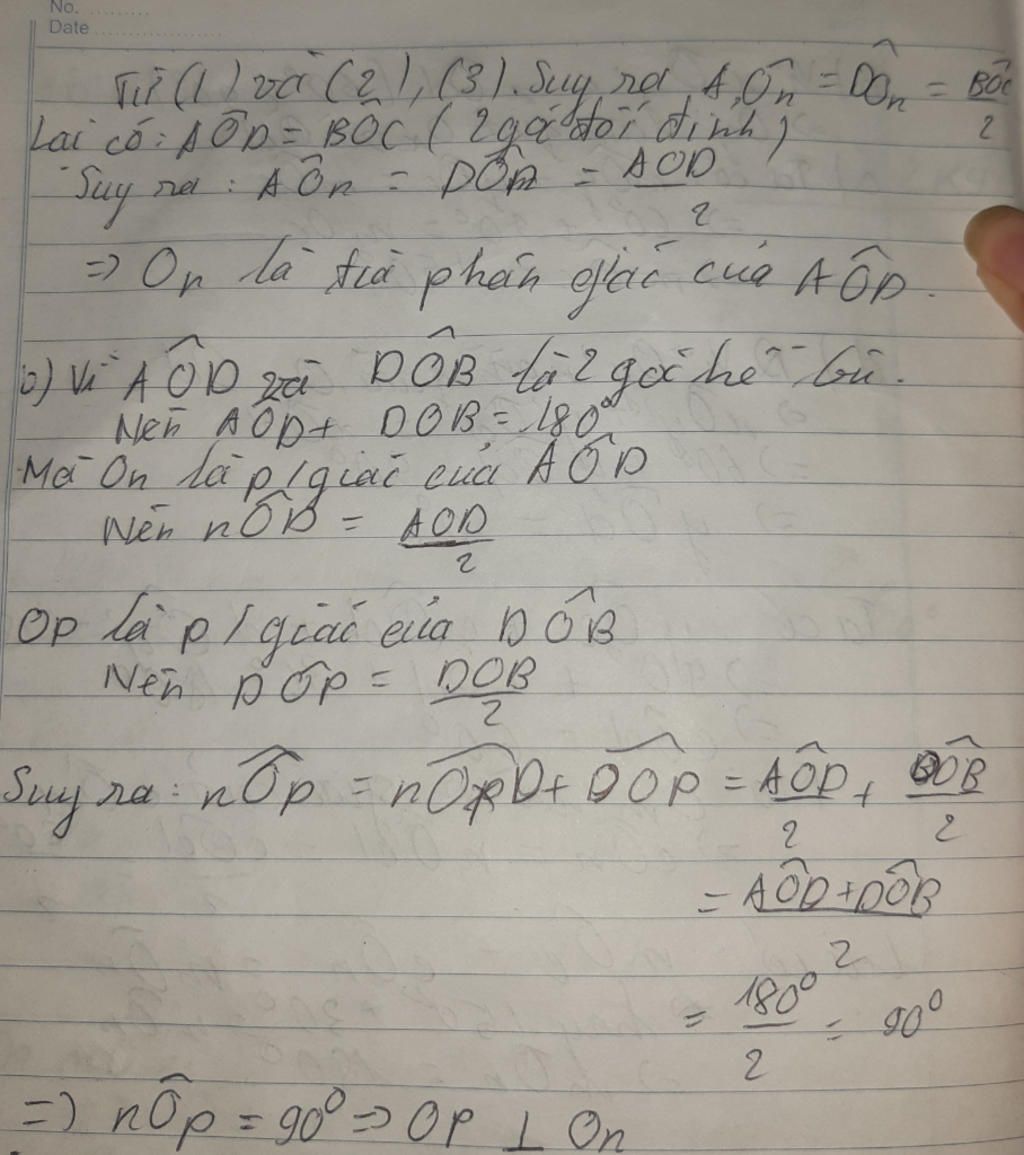 No. ..........
Date ......................
Từ (1) và (2), (3). Suy ra AÔn = DÔn = BÔC/2
Lại có: AÔD = BÔC (2 góc đối đỉnh)
Suy ra: AÔn = DÔn = AOD/2
=> On là tia phân giác của AÔD.
b) Vì AÔD và DÔB là 2 góc kề bù.
Nên AÔD + DOB = 180⁰
Mà On là p/giác của AÔD
Nên nÔD = AOD/2
Op là p/giác của DÔB
Nên DÔP = DOB/2
Suy ra: nÔp = nÔD + DÔP = AÔD/2 + DÔB/2
= AÔD + DÔB/2
= 180⁰/2 = 90⁰
=> nÔp = 90⁰ => OP ⊥ On